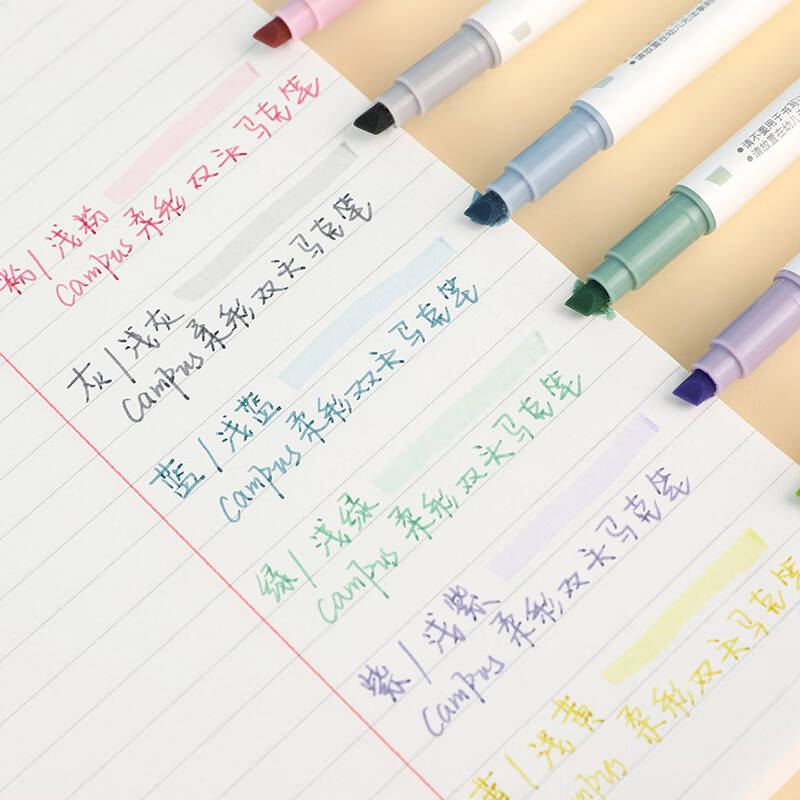 粉/浅粉
campus 柔彩双头马克笔
灰/浅灰
campus 柔彩双头马克笔
蓝/浅蓝
campus 柔彩双头马克笔
绿/浅绿
campus 柔彩双头马克笔
紫/浅紫
campus 柔彩双头马克笔
黄/浅黄
campus 柔彩双头马克笔
●请放置在幼儿无法拿到
●请不要用于书写
●请放置在幼儿